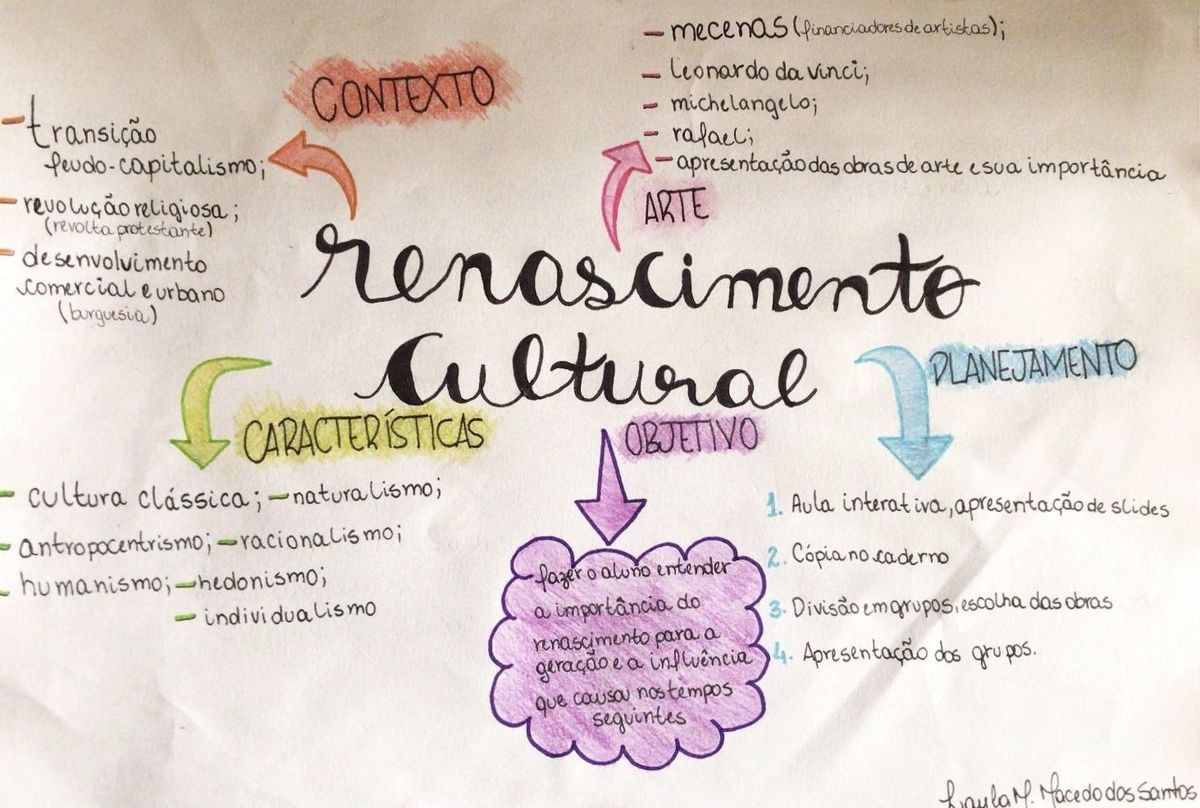 CONTEXTO
- transição
feudo-capitalismo;
- revolução religiosa;
(revolta protestante)
- desenvolvimento
comercial e urbano
(burguesia)
- mecenas (financiadores de artistas);
- Leonardo da vinci;
- michelangelo;
- rafael;
- apresentação das obras de arte e sua importância
ARTE
renascimento
cultural
CARACTERÍSTICAS
- cultura clássica; - naturalismo;
- antropocentrismo; - racionalismo;
- humanismo; - hedonismo;
- individualismo
OBJETIVO
fazer o aluno entender
a importância do
renascimento para a
geração e a influência
que causou nos tempos
seguintes
PLANEJAMENTO
1. Aula interativa, apresentação de slides
2. Cópia no caderno
3. Divisão em grupos, escolha das obras
4. Apresentação dos grupos.
M. Macedo dos Santos